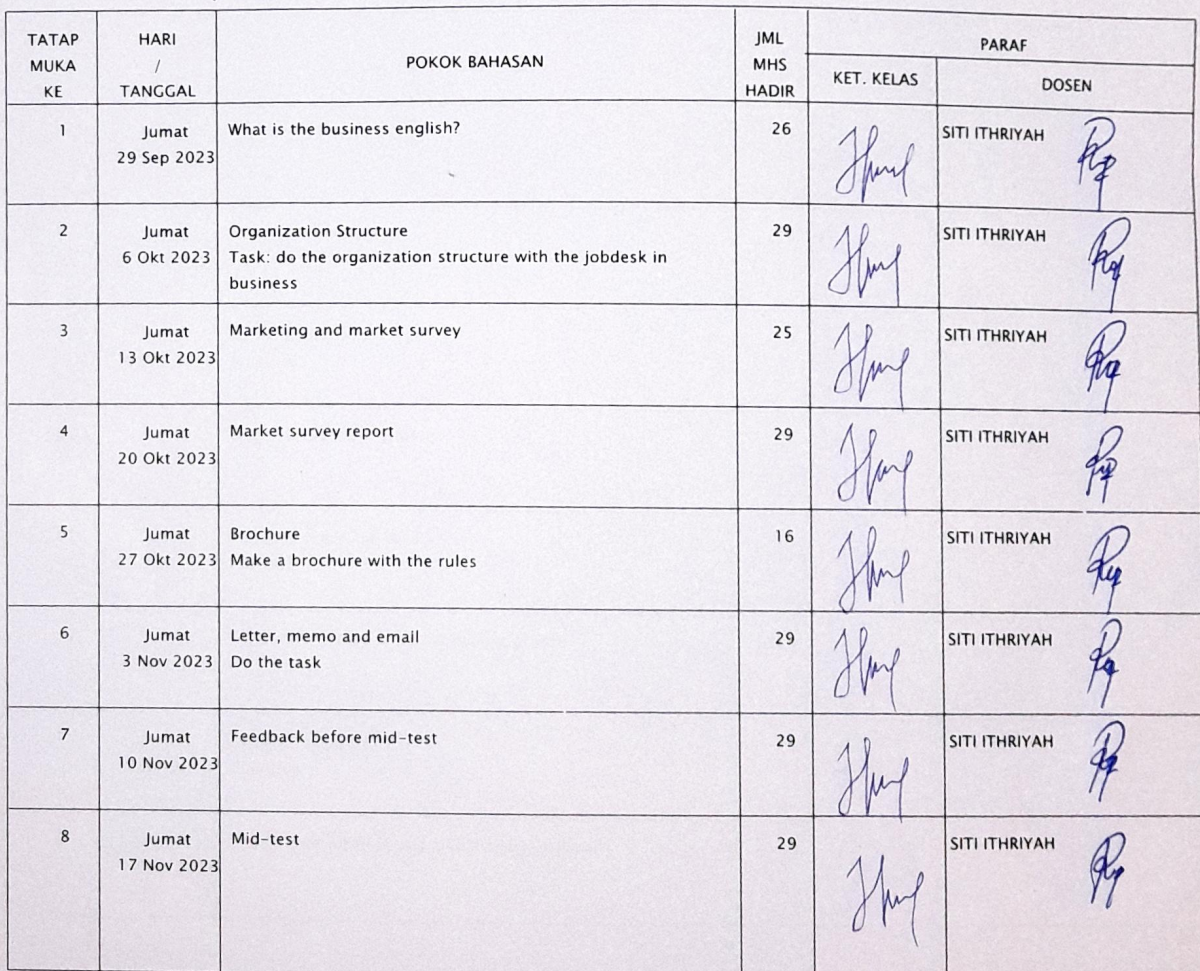 TATAP MUKA KE
HARI / TANGGAL
POKOK BAHASAN
JML MHS HADIR
PARAF
KET. KELAS
DOSEN
1
Jumat
29 Sep 2023
What is the business english?
26
SITI ITHRIYAH
2
Jumat
6 Okt 2023
Organization Structure
Task: do the organization structure with the jobdesk in
business
29
SITI ITHRIYAH
3
Jumat
13 Okt 2023
Marketing and market survey
25
SITI ITHRIYAH
4
Jumat
20 Okt 2023
Market survey report
29
SITI ITHRIYAH
5
Jumat
27 Okt 2023
Brochure
Make a brochure with the rules
16
SITI ITHRIYAH
6
Jumat
3 Nov 2023
Letter, memo and email
Do the task
29
SITI ITHRIYAH
7
Jumat
10 Nov 2023
Feedback before mid-test
29
SITI ITHRIYAH
8
Jumat
17 Nov 2023
Mid-test
29
SITI ITHRIYAH